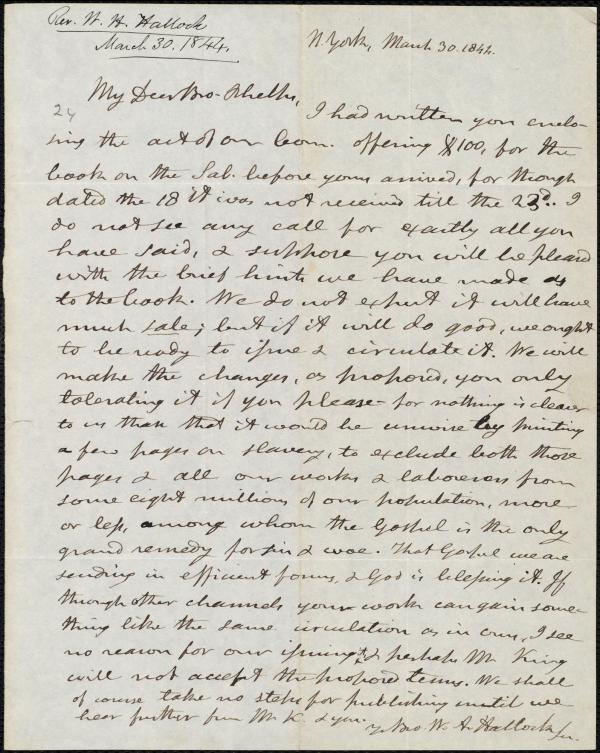 Rev. W. A. Hallock
March 30. 1844.
N. York, March 30. 1844.
24
My Dear Bro. Phelps,
I had written you enclo-
sing the act of our Com. offering $100, for the
book on the Sab. before yours arrived, for though
dated the 18th it was not received till the 23d. I
do not see any call for exactly all you
have said, & suppose you will be pleased
with the brief hints we have made as
to the book. We do not expect it will have
much sale; but if it will do good, we ought
to be ready to issue & circulate it. We will
make the changes, as proposed, you only
tolerating it if you please - for nothing is clearer
to us than that it would be unwise by printing
a few pages on slavery, to exclude both those
pages & all our works & laborers from
some eight millions of our population, more
or less, among whom the Gospel is the only
grand remedy for sin & woe. That Gospel we are
sending in efficient forms, & God is blessing it. If
through other channels your work can gain some-
thing like the same circulation as in ours, I see
no reason for our issuing it, & perhaps Mr. King
will not accept the proposed terms. We shall
of course take no steps for publishing until we
hear further from Mr. K. & you.
yr Bro. W. A. Hallock